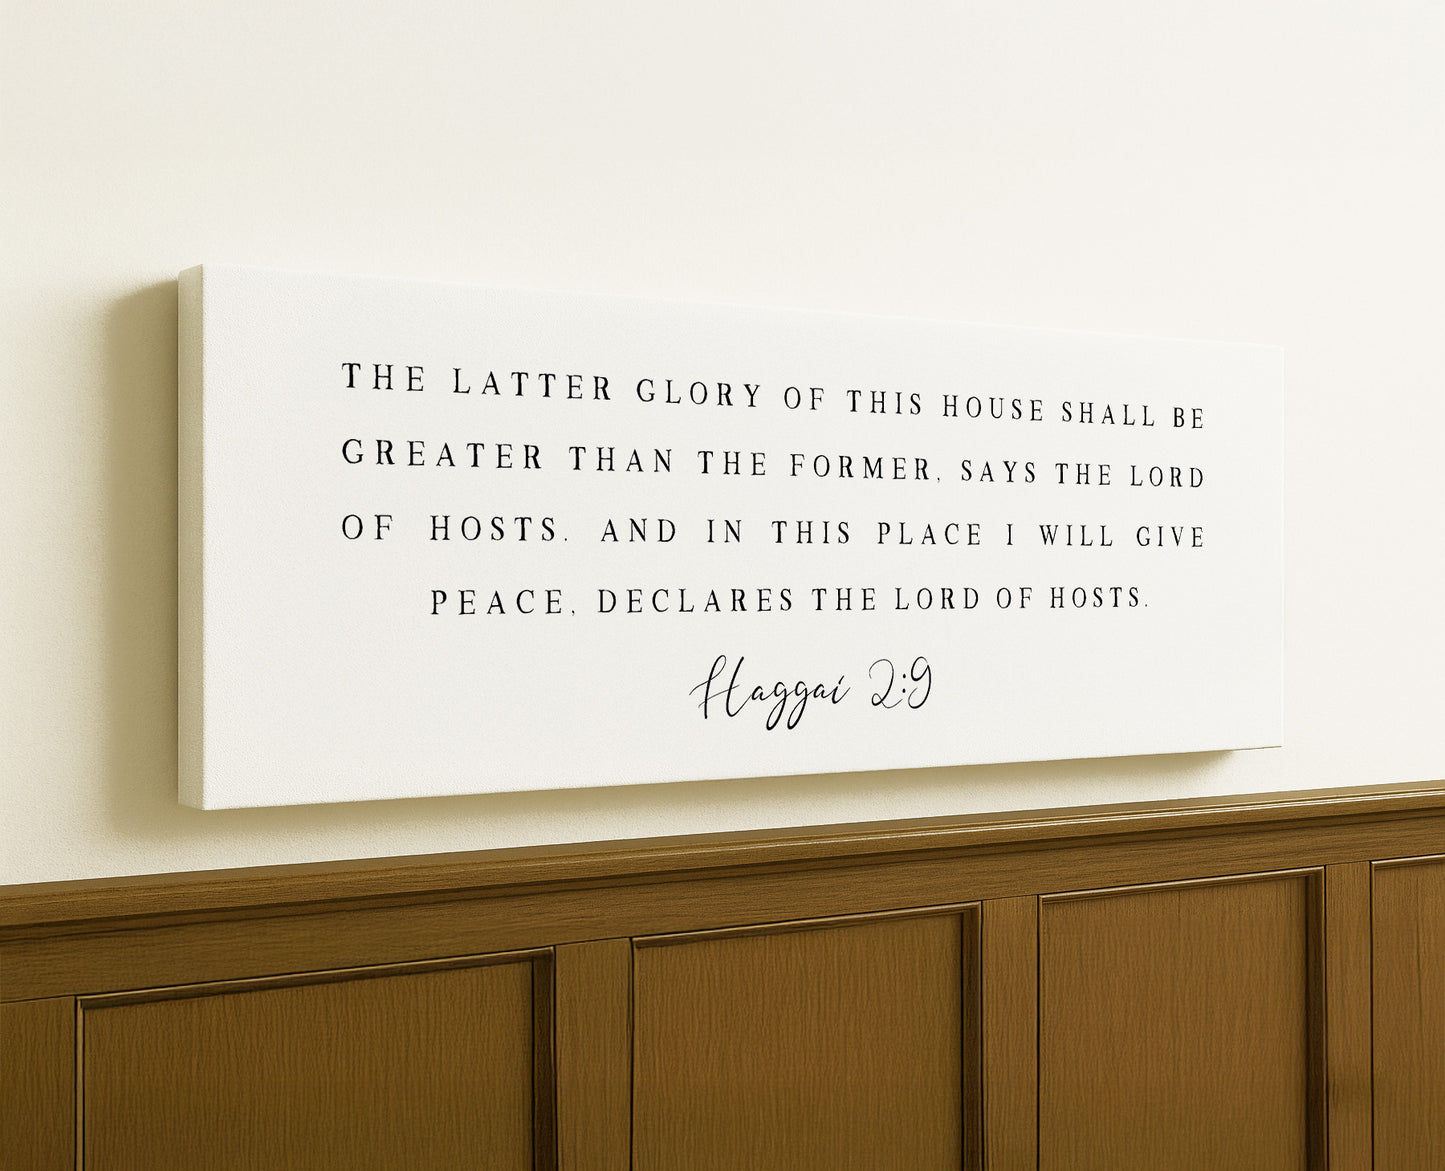 THE LATTER GLORY OF THIS HOUSE SHALL BE
GREATER THAN THE FORMER, SAYS THE LORD
OF HOSTS. AND IN THIS PLACE I WILL GIVE
PEACE, DECLARES THE LORD OF HOSTS.
Haggai 2:9